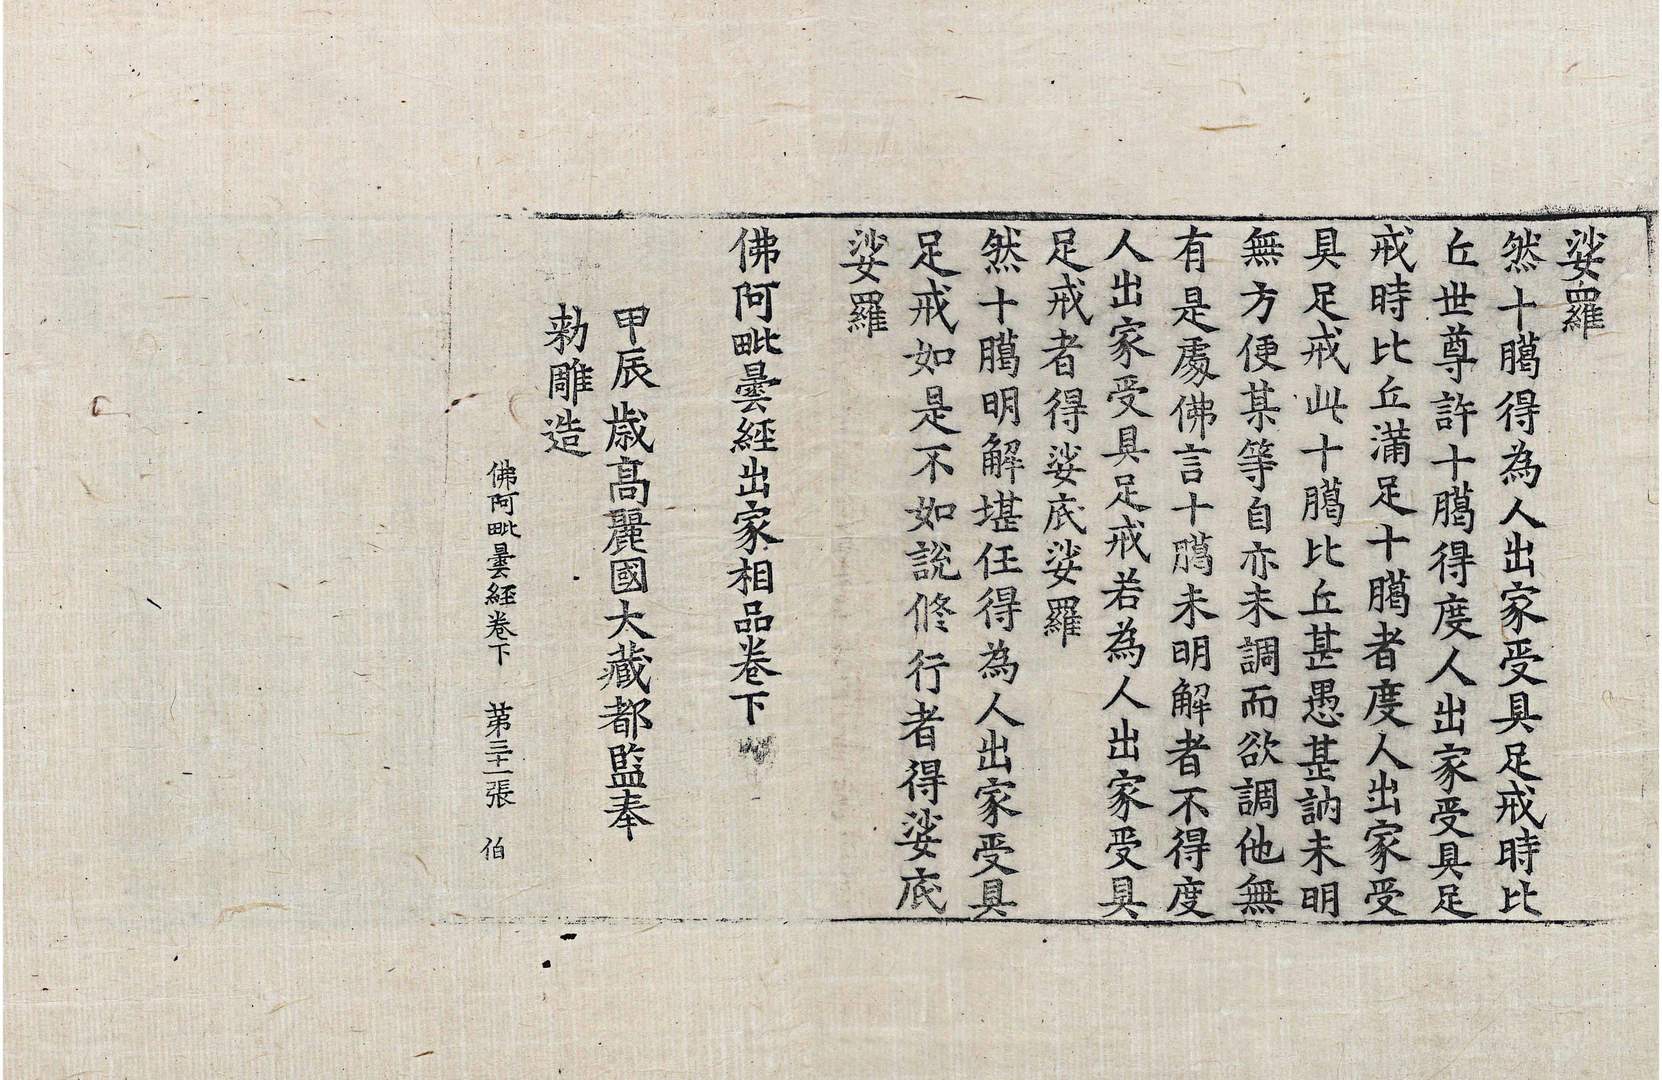 娑羅
然十臈得為人出家受具足戒時比
丘世尊許十臈得度人出家受具足
戒時比丘滿足十臈者度人出家受
具足戒此十臈比丘甚愚甚訥未明
無方便某等自亦未調而欲調他無
有是處佛言十臈未明解者不得度
人出家受具足戒若為人出家受具
足戒者得娑底娑羅
然十臈明解堪任得為人出家受具
足戒如是不如說修行者得娑底
娑羅
佛阿毗曇經出家相品卷下
甲辰歲高麗國大藏都監奉
勅雕造
佛阿毗曇經卷下 苐三十一張 伯